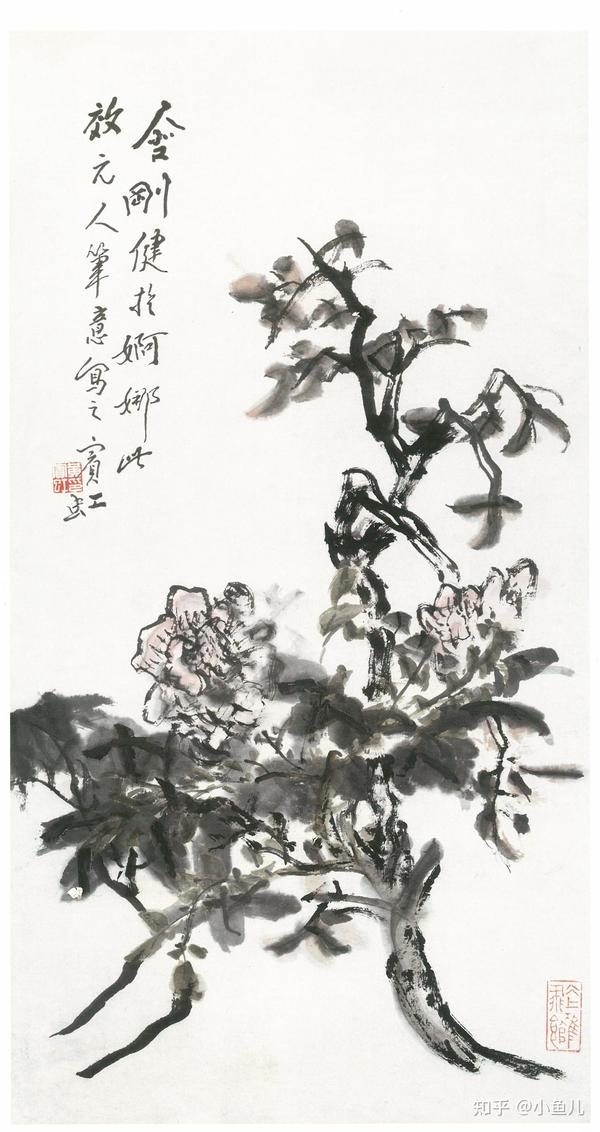 含剛健於婀娜此
效元人筆意寫之賓虹
知乎 @小鱼儿